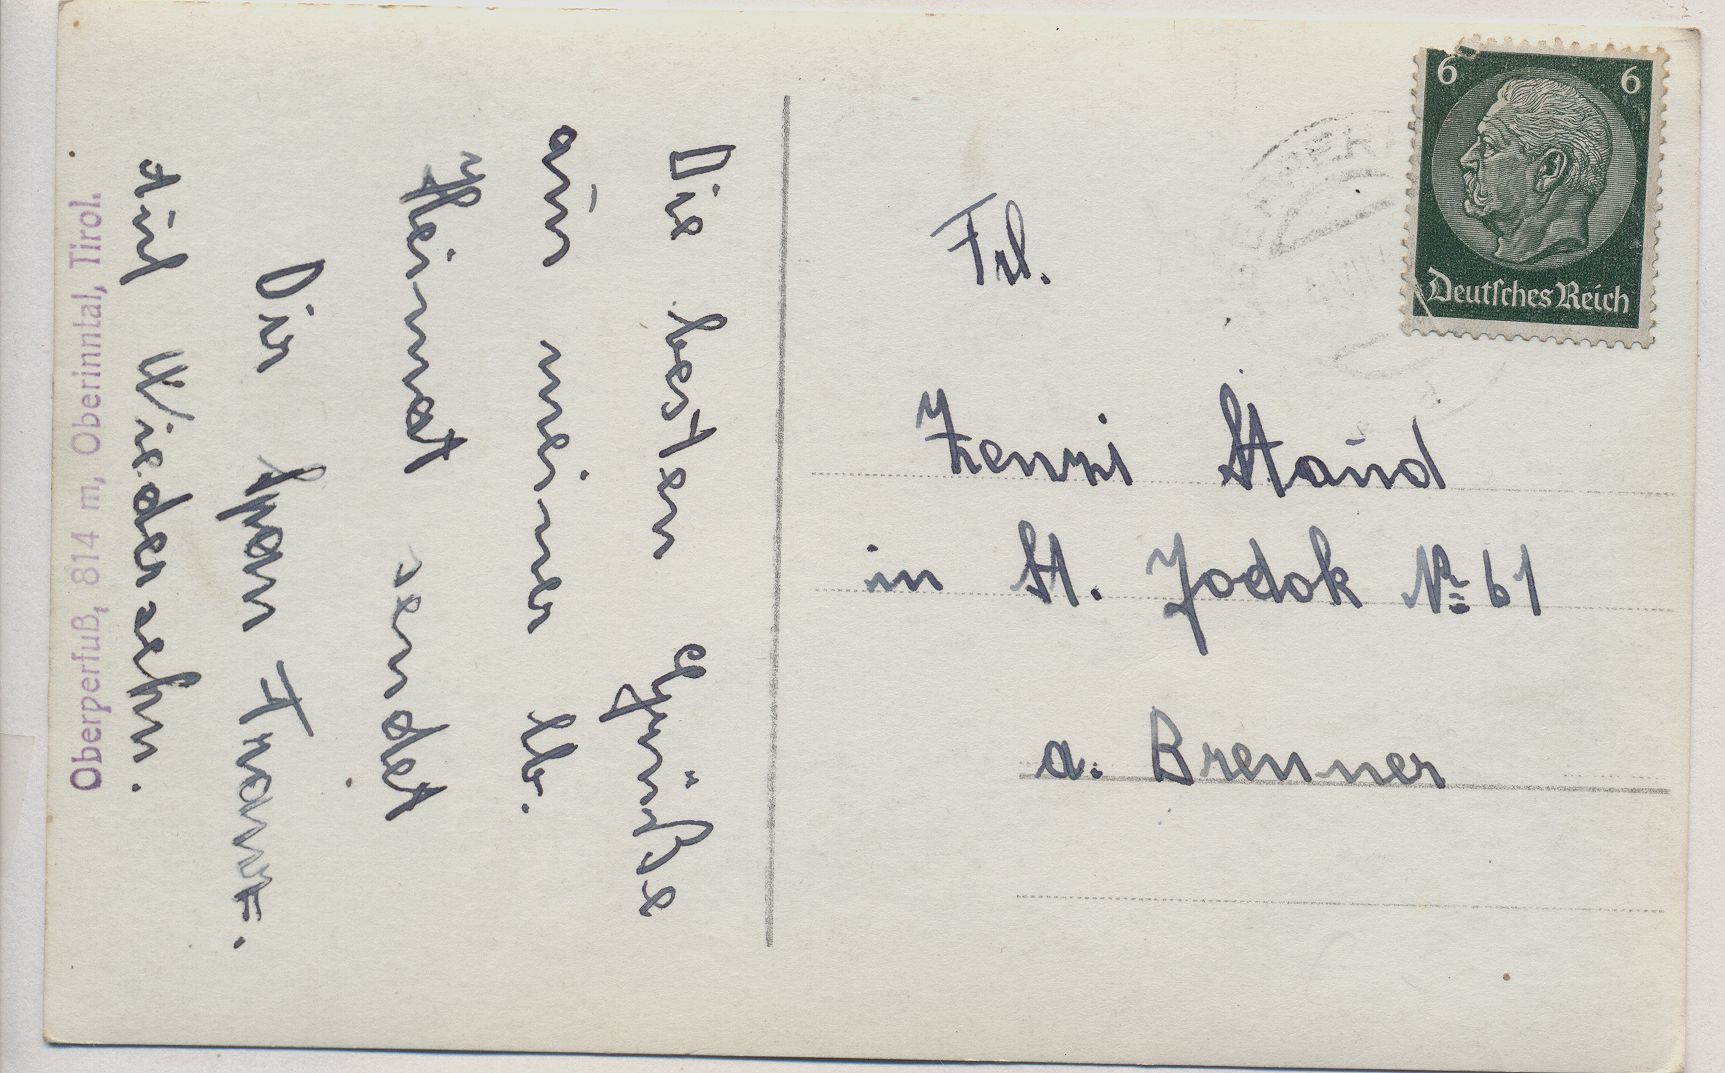 Die besten Grüße
aus meiner lb.
Heimat sendet
Dir Span Franz.
Auf Wiedersehn.
Oberperfuß, 814 m, Oberinntal, Tirol.
6 6
Deutsches Reich
Frl.
Zenzi Staud
in St. Jodok № 61
a. Brenner